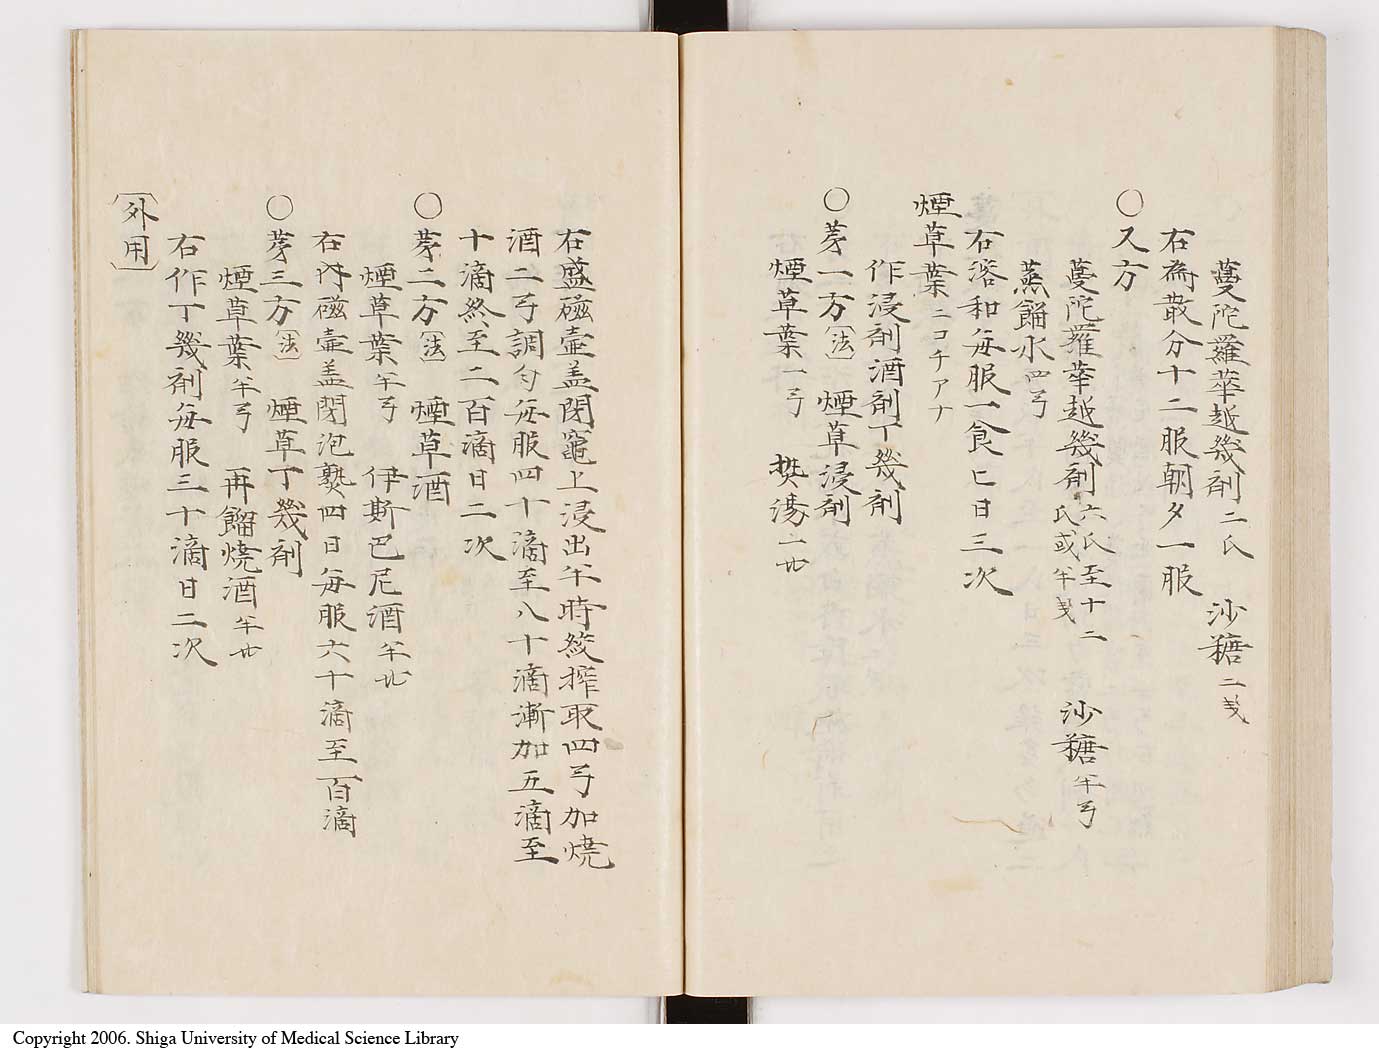 蔓陀羅華越幾剤二氏　沙糖二戔
右為散分十二服朝夕一服
〇又方
蔓陀羅華越幾剤六氏至十二氏或半戔　沙糖半弓
蒸餾水四弓
右溶和毎服一食匕日三次
煙草葉ニコチアナ
作浸剤酒剤丁幾剤
〇第一方〔法〕　煙草浸剤
右煙草葉一弓　湯二廿
右盛磁壷蓋閉竈上浸出半時絞搾取四弓加焼
酒二弓調匀毎服四十滴至八十滴漸加五滴至
十滴終至二百滴日二次
〇第二方〔法〕　煙草酒
煙草葉半弓　伊斯巴尼酒半廿
右内磁壷蓋閉泡熟四日毎服六十滴至百滴
〇第三方〔法〕　煙草丁幾剤
煙草葉半弓　再餾焼酒半廿
右作丁幾剤毎服三十滴日二次
〔外用〕
Copyright 2006. Shiga University of Medical Science Library